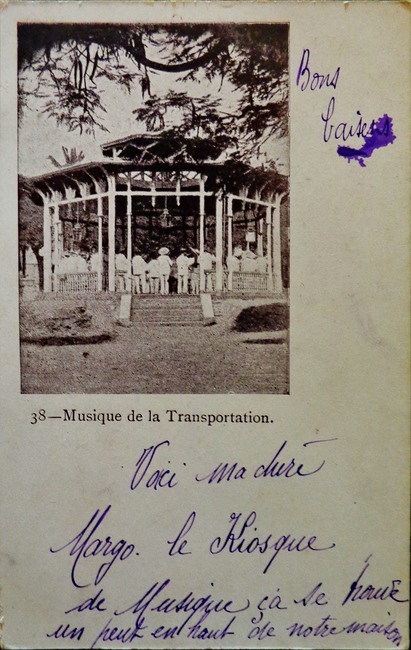 Bons
baisers
38—Musique de la Transportation.
Voici ma chère
Margo. le Kiosque
de Musique çà se trouve
un peut en haut de notre maison